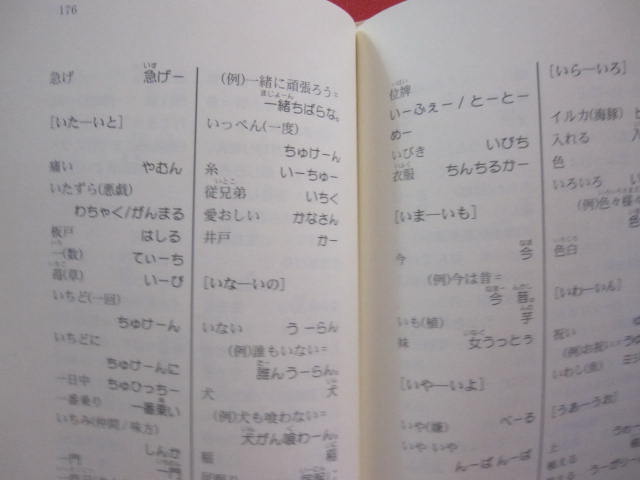 176
急げ 急げー
[いたーいと]
痛い やむん
いたずら(悪戯)
わちゃく/がんまる
板戸 はしる
一(数) てぃーち
苺(草) いーび
いちど(一回)
ちゅけーん
いちどに
ちゅけーんに
一日中 ちゅひっちー
一番乗り 一番乗い
いちみ(仲間/味方)
しんか
一門 一門
(例)一緒に頑張ろう=
一緒ちばらな。
いっぺん(一度)
ちゅけーん
糸 いーちゅー
従兄弟 いちく
愛おしい かなさん
井戸 かー
[いなーいの]
いない うーらん
(例)誰もいない=
誰んうーらん。
犬 犬
(例)犬も喰わない=
犬がん喰わーん。
位牌
いーふぇー/とーとー
めー
いびき いびち
衣服 ちんちるかー
[いまーいも]
今 今
(例)今は昔=
今 昔。
いも(植) 芋
妹 女うっとぅ
[いやーいよ]
いや(嫌) べーる
いやいや
んーぱんぱー
[いらーいろ]
イルカ(海豚)
入れる
色
いろいろ
(例)色々様々
色白
[いわーいん]
祝い
(例)お祝い=
いわし(魚)
[うあーうお]
上